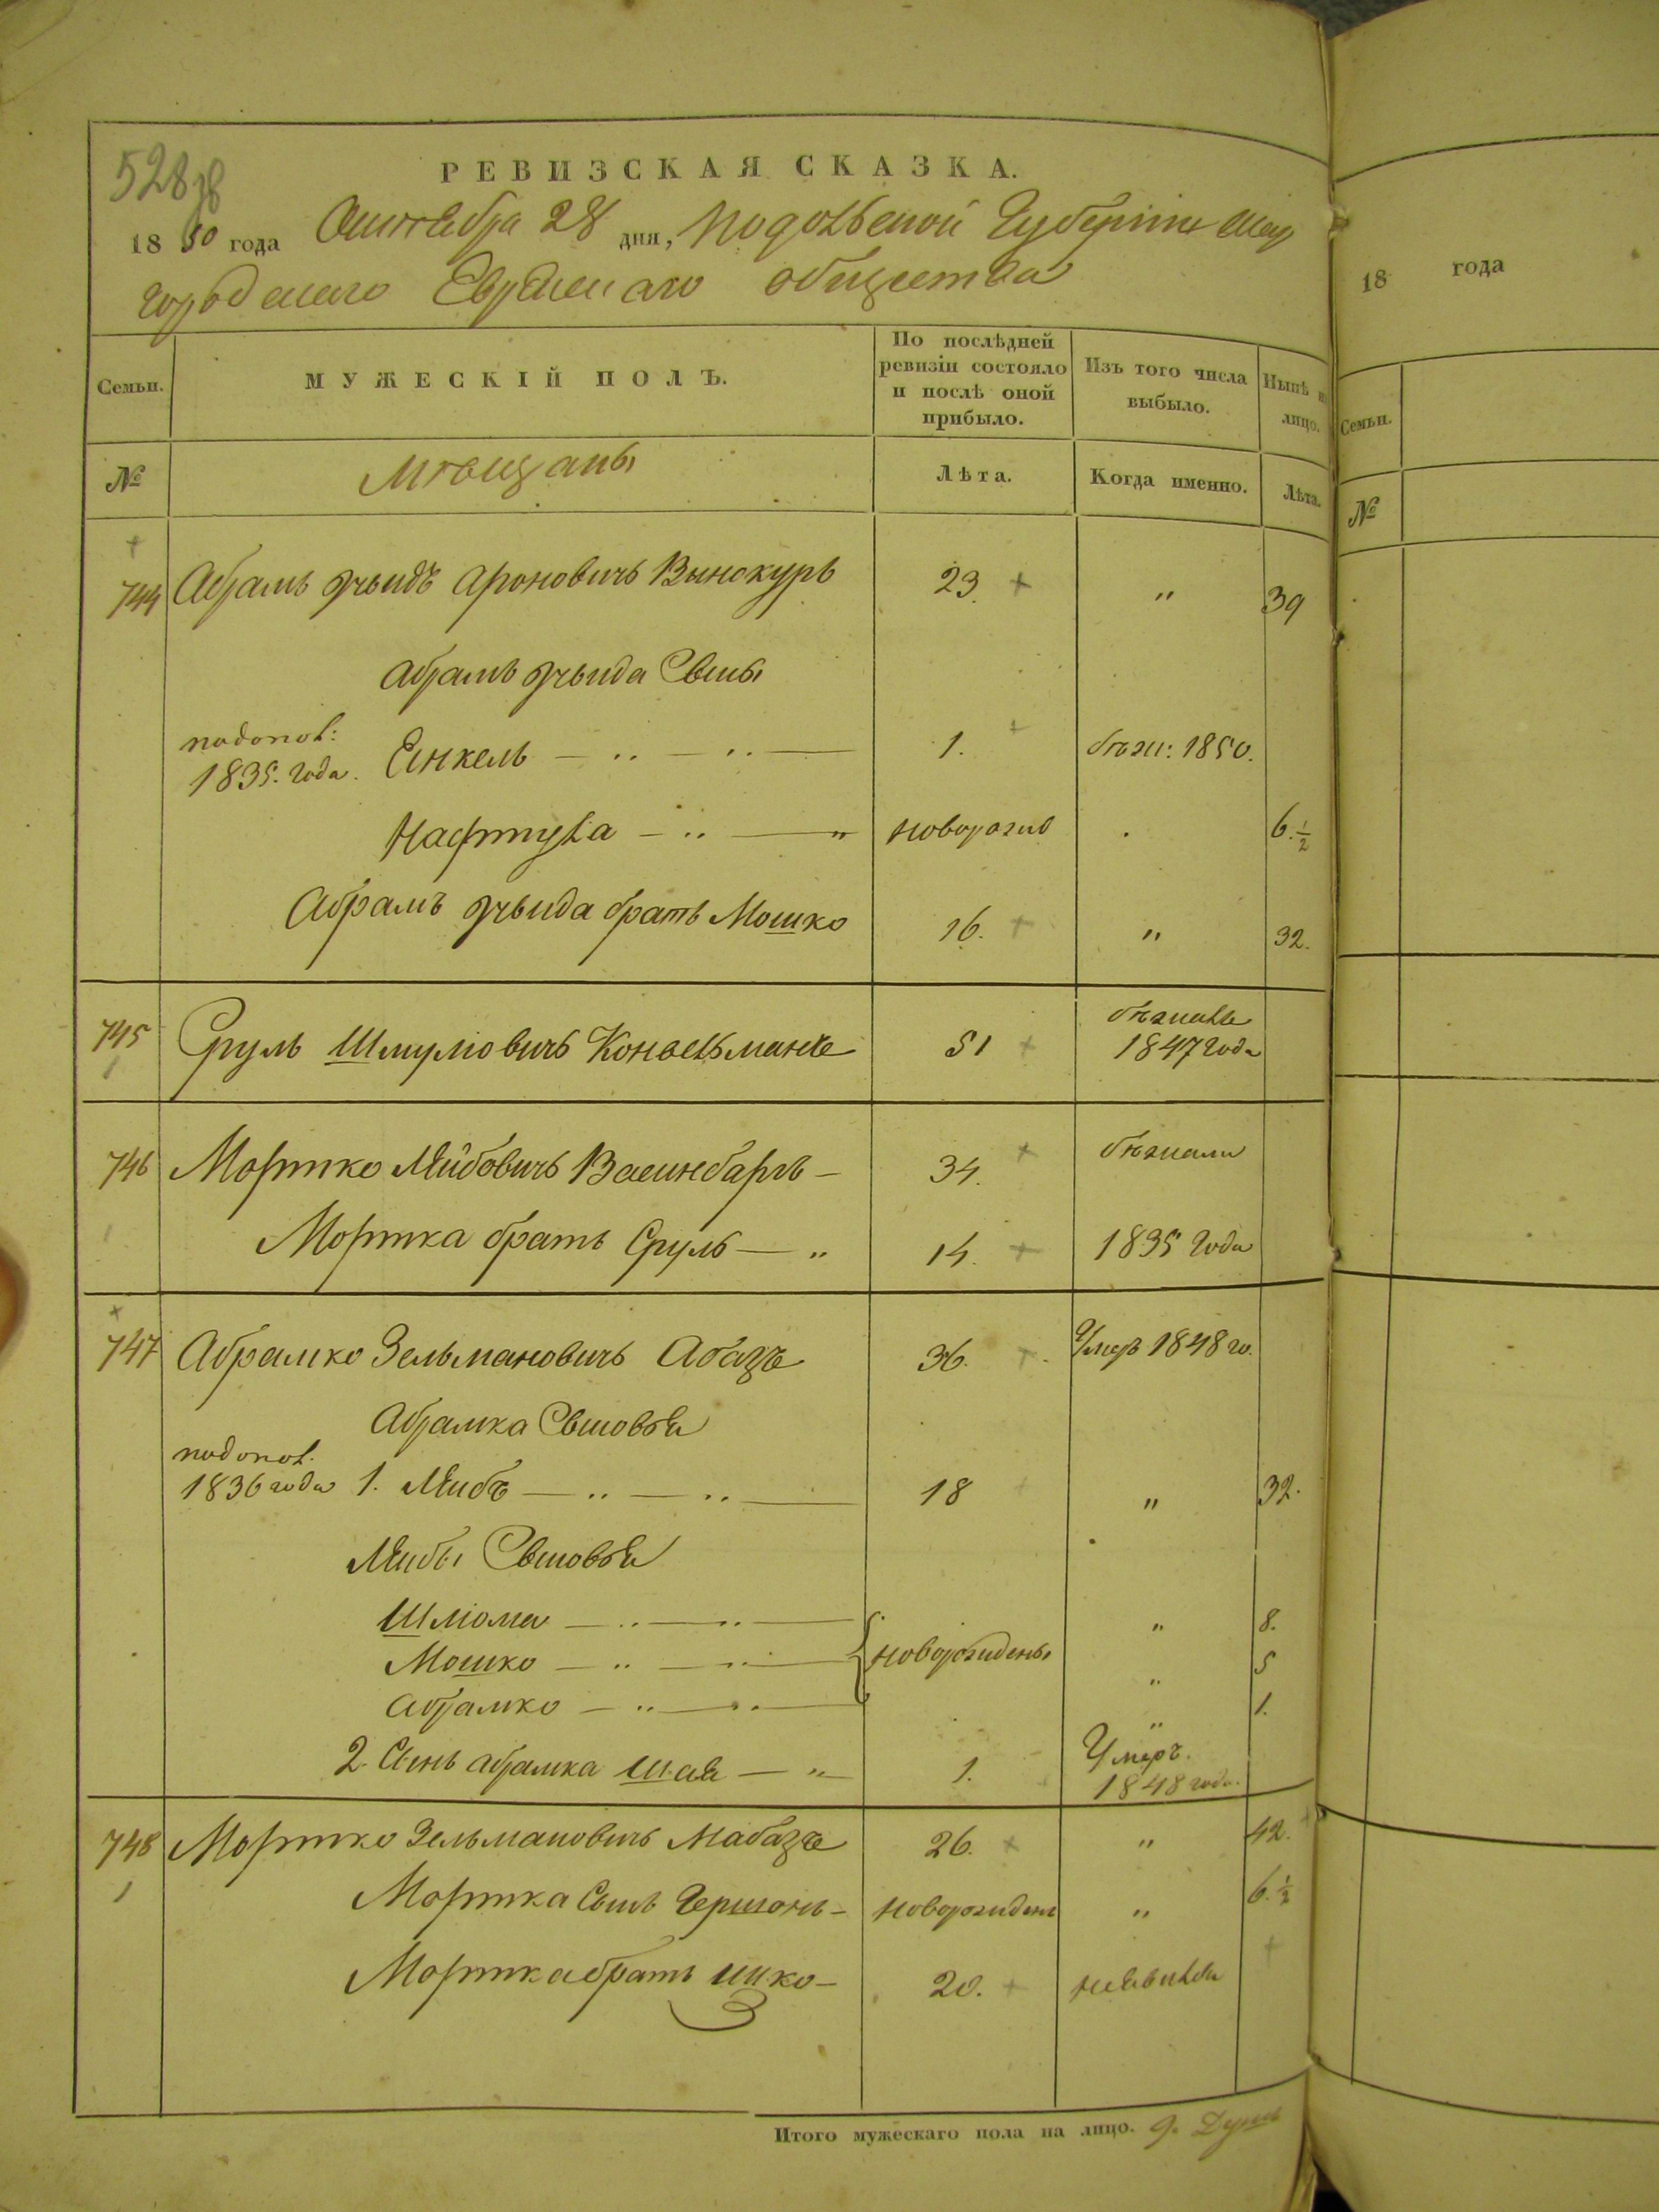 528
РЕВИЗСКАЯ СКАЗКА.
1850 года Октября 28 дня, Подольской Губерніи Шар
городскаго Еврейскаго общества
18 года
Семьи.
МУЖЕСКІЙ ПОЛЪ.
По послѣдней ревизіи состояло и послѣ оной прибыло.
Изъ того числа выбыло.
Нынѣ на лицо.
Семьи.
№ Мѣщаны Лѣта. Когда именно. Лѣта. №
744 Абрамъ Ароновичъ Винокуръ 23. " 39
Абрамъ Сыны
подопол:
1835. года. Еинкель 1. бѣж: 1850.
Нафтула новорожд 6.½
Абрамъ братъ Мошко 16. " 32.
745 Сруль Шмуліовичъ 51 бѣжалъ
1847 года
746 Мортко Лейбовичъ Ваеинбаргъ 34. бѣжали
Мортка братъ Сруль " 14. 1835 года
747 Абрамко Зельмановичъ Абазъ 36. Умеръ 1848 го.
Абрамка Сыновья
подопол.
1836 года 1. Леибъ 18 " 32.
Леибы Сыновья
Шліома " 8.
Мошко новорожденны " 5
Абрамко " 1.
2. Сынъ абрамка Шая " 1. Умеръ.
1848 года.
748 Мортко Зельмановичъ Мабазъ 26. " 42.
Мортка Сынъ Гершонъ новорожденъ " 6.½
Мортка братъ Ицко 20. неявился
Итого мужескаго пола на лицо. 9. Душъ